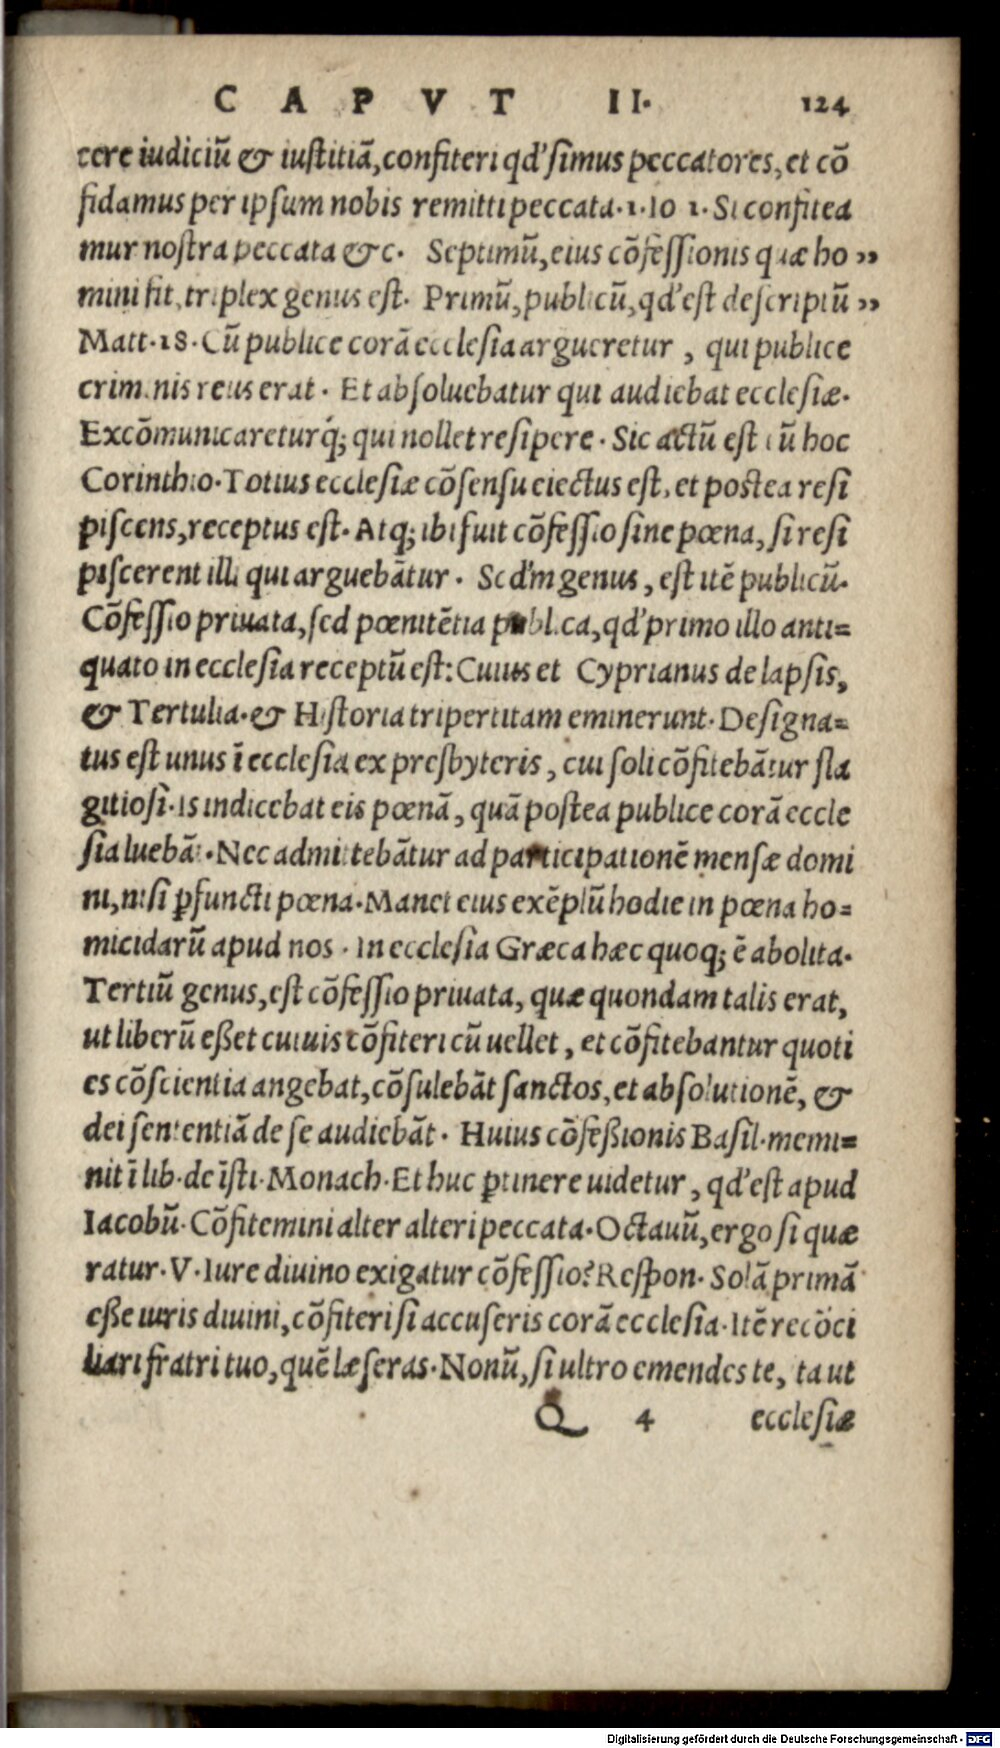 CAPVT II. 124
cere iudiciũ & iustitiã, confiteri qd' simus peccatores, et cõ
fidamus per ipsum nobis remitti peccata. 1. Io 1. Si confitea
mur nostra peccata &c. Septimũ, eius cõfessionis quæ ho ”
mini fit, triplex genus est. Primũ, publicũ, qd' est descriptũ ”
Matt. 18. Cũ publice corã ecclesia argueretur , qui publice
criminis reus erat. Et absoluebatur qui audiebat ecclesiæ.
Excõmunicareturq́; qui nollet resipere. Sic actũ est cũ hoc
Corinthio. Totius ecclesiæ cõsensu eiectus est, et postea resi
piscens, receptus est. Atq; ibi fuit cõfessio sine pœna, si resi
piscerent illi qui arguebãtur. Scd'm genus, est itẽ publicũ.
Cõfessio priuata, sed pœnitẽtia publica, qd' primo illo anti=
quato in ecclesia receptũ est: Cuius et Cyprianus de lapsis,
& Tertulia. & Historia tripertitam eminerunt. Designa=
tus est unus ĩ ecclesia ex presbyteris, cui soli cõfitebãtur fla
gitiosi. Is indicebat eis pœnã, quã postea publice corã eccle
sia luebãt. Nec admittebãtur ad participationẽ mensæ domi
ni, nisi p̱functi pœna. Manet eius exẽplũ hodie in pœna ho=
micidarũ apud nos. In ecclesia Græca hæc quoq; ẽ abolita.
Tertiũ genus, est cõfessio priuata, quæ quondam talis erat,
ut liberũ eßet cuiuis cõfiteri cũ uellet, et cõfitebantur quoti
es cõscientia angebat, cõsulebãt sanctos, et absolutionẽ, &
dei sententiã de se audiebãt. Huius cõfeßionis Basil. memi=
nit ĩ lib. de ĩsti. Monach. Et huc p̱tinere uidetur, qd' est apud
Iacobũ. Cõfitemini alter alteri peccata. Octauũ, ergo si quæ
ratur. V. Iure diuino exigatur cõfessio? Respon. Solã primã
eße iuris diuini, cõfiteri si accuseris corã ecclesia. Itẽ recõci
liari fratri tuo, quẽ læseras. Nonũ, si ultro emendes te, ta ut
Q 4 ecclesiæ
Digitalisierung gefördert durch die Deutsche Forschungsgemeinschaft - DFG